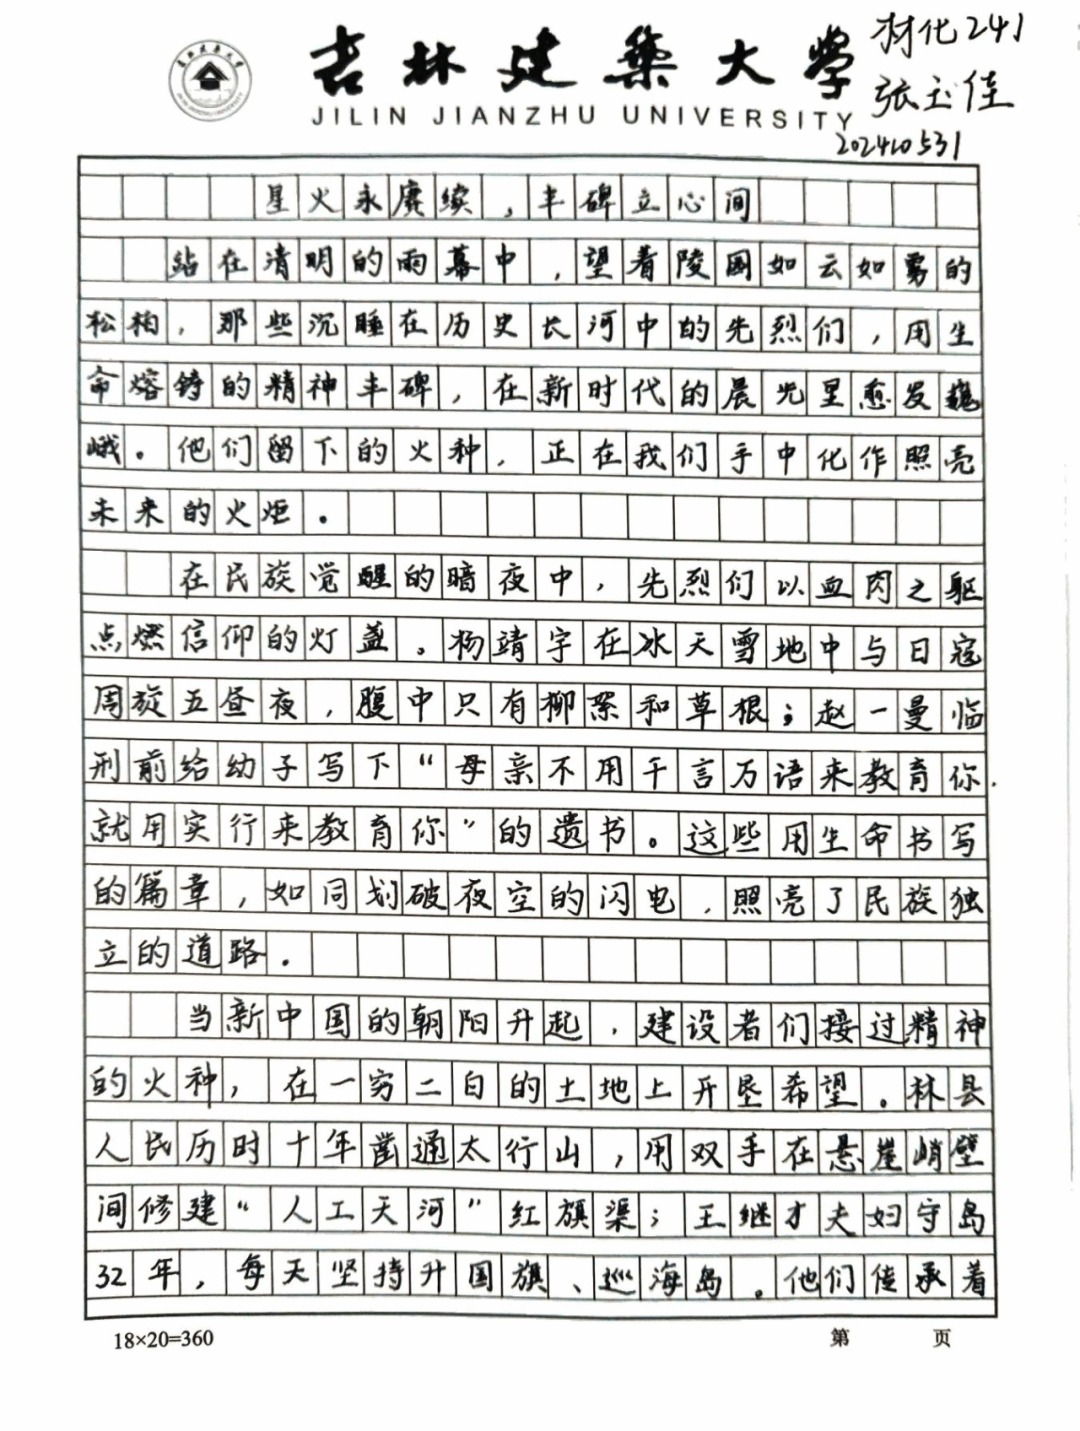 吉林建筑大学
JILIN JIANZHU UNIVERSITY
材化241
张玉佳
202410531
星火永赓续，丰碑立心间
站在清明的雨幕中，望着陵园如云如雾的
松柏，那些沉睡在历史长河中的先烈们，用生
命熔铸的精神丰碑，在新时代的晨光里愈发巍
峨。他们留下的火种，正在我们手中化作照亮
未来的火炬。
在民族觉醒的暗夜中，先烈们以血肉之躯
点燃信仰的灯盏。杨靖宇在冰天雪地中与日寇
周旋五昼夜，腹中只有柳絮和草根；赵一曼临
刑前给幼子写下“母亲不用千言万语来教育你，
就用实行来教育你”的遗书。这些用生命书写
的篇章，如同划破夜空的闪电，照亮了民族独
立的道路。
当新中国的朝阳升起，建设者们接过精神
的火种，在一穷二白的土地上开垦希望。林县
人民历时十年凿通太行山，用双手在悬崖峭壁
间修建“人工天河”红旗渠；王继才夫妇守岛
32年，每天坚持升国旗、巡海岛。他们传承着
18×20=360
第 页